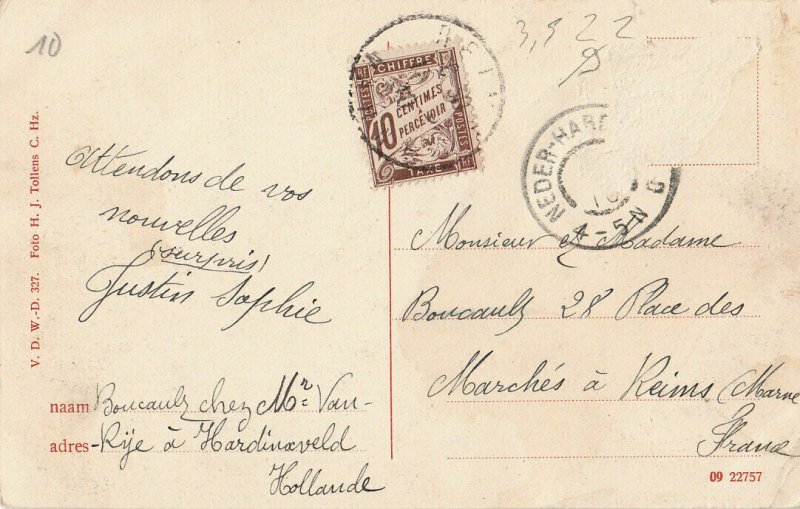 10
3,9 22
V. D. W.-D. 327. Foto H. J. Tollens C. Hz.
RF CHIFFRE RF
POSTES
10 CENTIMES
À
PERCEVOIR
POSTES
TAXE RF
NEDER-HARD
10
4-5N
Attendons de vos
nouvelles
(surpris)
Justin Sophie
Monsieur et Madame
Boucault 28 Place des
Marchés à Reims (Marne
France
naam Boucault chez Mr Van-
adres-Rije à Hardinxveld
Hollande
09 22757